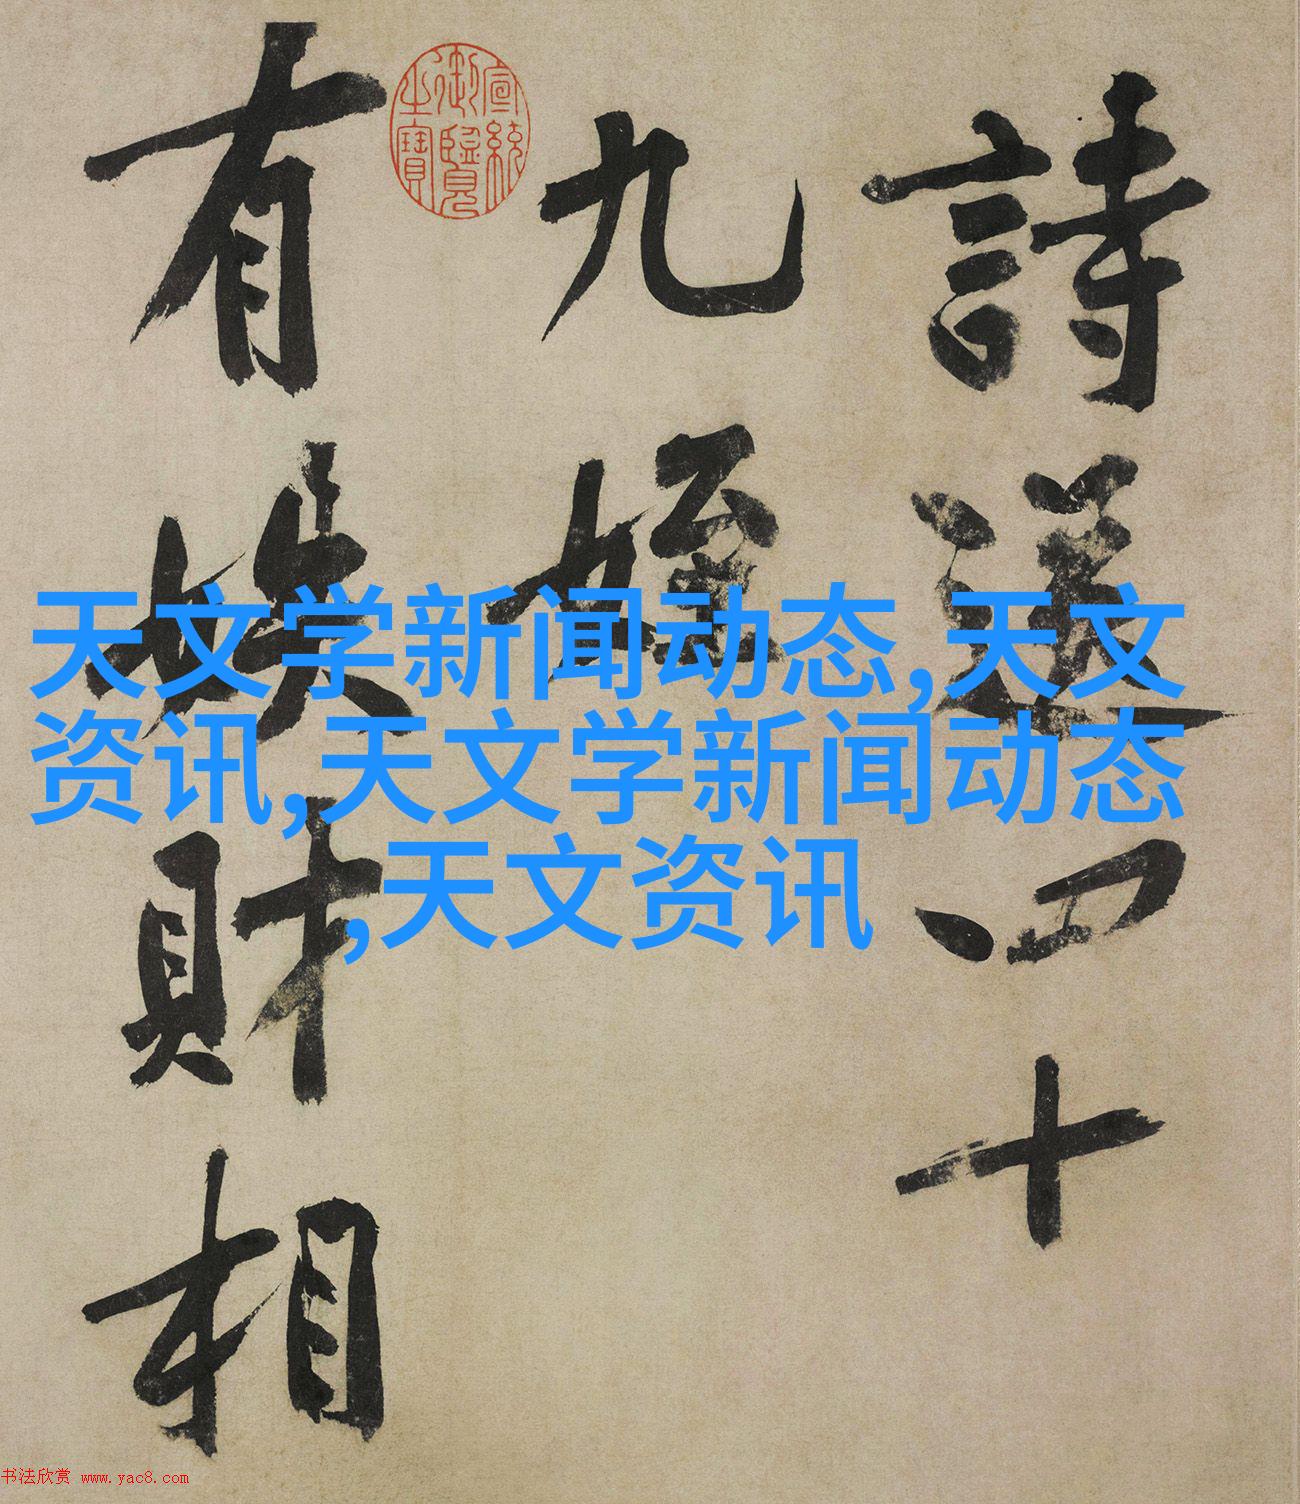 詩送四十
九姪
有財相
宣統御覽之寶
天文学新闻动态,天文
资讯,天文学新闻动态
,天文资讯
书法欣赏 www.yac8.com